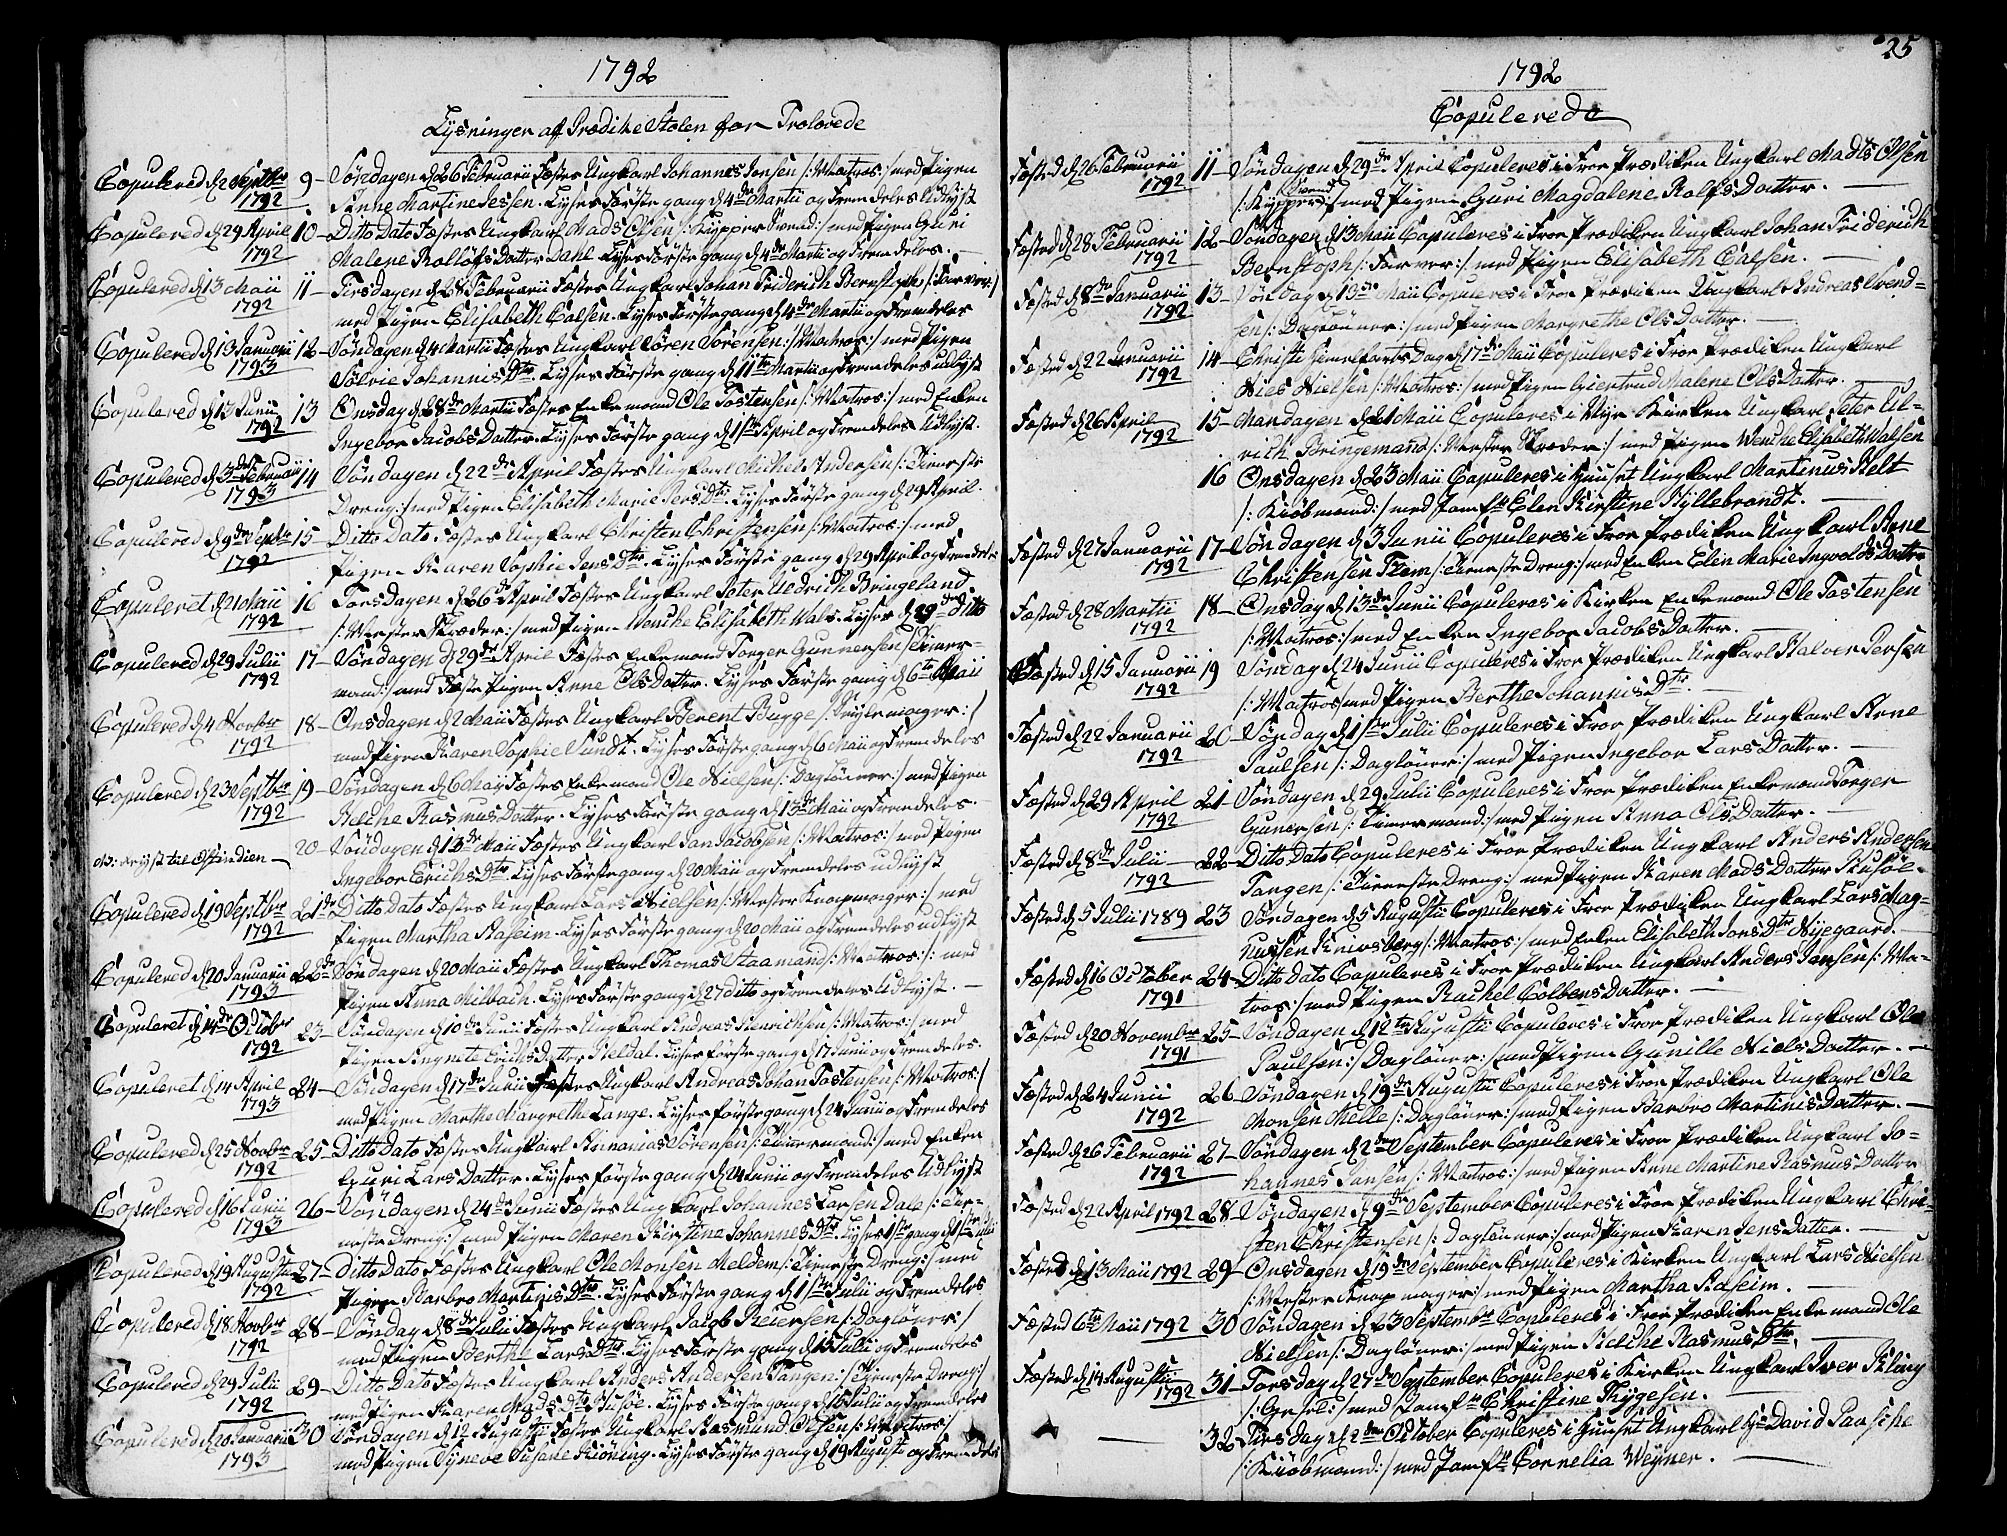 1792
Lysninger af Prædike Stolen for Trolovede
Copulered d 2 Septbr 1792 9 - Søndagen d 26 Februarii Fæstes Ungkarl Johannes Jansen /: Matros :/ med Pigen
Anne Martine Jessen. Lyses Første gang d 4de Martii og Fremdeles Udlyst
Copulered d 29 April 1792 10 - Ditto Dato Fæstes Ungkarl Mads Olsen /: Kypper Svend :/ med Pigen Guri
Malene Rollofs Datter Dahl. Lyses Første gang d 4de Martii og Fremdeles. -
Copulered d 13 Maii 1792 11 - Tirsdagen d 28 Februarii Fæstes Ungkarl Johan Friderich Bernstoph /: Farver :/
med Pigen Elisabeth Calsen. Lyses Første gang d 4de Martii og Fremdeles
Copulered d 13 Januarii 1793 12 - Søndagen d 4 Martii Fæstes Ungkarl Søren Sørensen /: Matros :/ med Pigen
Sølvie Johannis Dtr. Lyses Første gang d 11te Martii og Fremdeles udlyst
Copulered d 13 Junii 1792 13 Onsdag d 28de Martii Fæstes Enkemand Ole Tostensen /: Matros :/ med Enken
Ingebor Jacobs Datter. Lyses Første gang d 1ste April og Fremdeles Udlyst.
Copulered d 3de Februarii 1793 14 Søndagen d 22de April Fæstes Ungkarl Michel Andersen /: Tieneste
Dreng :/ med Pigen Elisabeth Marie Pers Dtr. Lyses Første gang d 29 April.
Copulered d 9de Septbr 1792 15 Ditto Dato Fæstes Ungkarl Christen Christensen /: Matros :/ med
Pigen Karen Sophie Jens Dtr. Lyses Første gang d 29 April og Fremdeles
Copuleret d 21 Maii 1792 16 Torsdagen d 26de April Fæstes Ungkarl Peter Uldrich Bringeland
/: Mester Skræder :/ med Pigen Wenche Elisabeth Wals. Lyses d 29de ditto
Copulered d 29 Julii 1792 17 - Søndagen d 29de April Fæstes Enkemand Torger Gunnersen /: Timer-
mand :/ med Fæste Pigen Anne Ols Datter. Lyses Første gang d 6te Maii
Copulered d 4 Novbr 1792 18 - Onsdagen d 2 Maii Fæstes Ungkarl Berent Bugge
med Pigen Karen Sophie Sundt. Lyses Første gang d 6 Maii og Fremdeles
Copulered d 23 Septbr 1792 19 - Søndagen d 6 May Fæstes Enkemand Ole Nielsen /: Dagløner :/ med Pigen
Helche Rasmus Datter. Lyses Første gang d 13de Maii og Fremdeles. -
til Ostindien - 20 - Søndagen d 13de Maii Fæstes Ungkarl Jan Jacobsen /: Matros :/ med Pigen
Ingebor Erichs Dtr. Lyses Første gang d 20 Maii og Fremdeles udlyst
Copulered d 19 Septbr 1792 21 - Ditto Dato Fæstes Ungkarl Lars Nielsen /: Mester Knapmager :/ med
Pigen Martha Raseim. Lyses Første gang d 20 Maii og Fremdeles udlyst
Copulered d 20 Januarii 1793 22 - Søndagen d 20 Maii Fæstes Ungkarl Thomas Staamand /: Matros :/ med
Pigen Anna Milbach. Lyses Første gang d 27 ditto og Fremdeles Udlyst. -
Copuleret d 14de Octobr 1792 23 - Søndagen d 10de Junii Fæstes Ungkarl Andreas Henrichsen /: Matros :/ med
Pigen Angnete Erichs Datter Heldal. Lyses første gang d 17 Junii og Fremdeles.
Copuleret d 14 April 1793 24 - Søndagen d 17de Junii Fæstes Ungkarl Andreas Johan Tostensen /: Matros :/
med Pigen Martha Margrethe Lange. Lyses første gang d 24 Junii og Fremdeles
Copulered d 25 Novbr 1792 25 - Ditto Dato Fæstes Ungkarl Annanias Sørensen /: Timermand :/ med Enken
Guri Lars Datter. Lyses første gang d 24 Junii og Fremdeles Udlyst
Copulered d 16 Junii 1793 26 - Søndagen d 24de Junii Fæstes Ungkarl Johannes Larsen Dale /: Tie-
neste Dreng :/ med Pigen Maren Kirstine Johannes Dtr. Lyses 1ste gang d 1ste Julii
Copulered d 19 Augusti 1792 27 - Ditto Dato Fæstes Ungkarl Ole Monsen Meldem /: Tieneste Dreng :/ med
Pigen Barbro Martinis Dtr. Lyses Første gang d 1ste Julii og Fremdeles
Copulered d 18 Novbr 1792 28 - Søndag d 8de Julii Fæstes Ungkarl Jacob Reiersen /: Dagløner :/
med Pigen Berthe Lars Dtr. Lyses Første gang d 15 Julii og Fremdeles
Copulered d 29 Julii 1792 29 - Ditto Dato Fæstes Ungkarl Anders Andersen Tangen /: Tieneste Dreng :/
med Pigen Karen Mads Dtr Husøe. Lyses Første gang d 15 Julii og Fremdeles
Copulered d 20 Januarii 1793 30 Søndagen d 12 Augusti Fæstes Ungkarl Rasmund Olsen /: Matros :/
med Pigen Syneve Susane Kiøning. Lyses Første gang d 19 Augusti og Fremdeles
25
1792
Copulerede
Fæsted d 26 Februarii 1792 11 - Søndagen d 29de April Copuleres i Froe Prædiken Ungkarl Madts Olsen
/: Kypper Svend :/ med Pigen Guri Magdalene Rolfs Datter. -
Fæsted d 28 Februarii 1792 12 - Søndagen d 13 Maii Copuleres i Froe Prædiken Ungkarl Johan Friderich
Bernstoph /: Farver :/ med Pigen Elisabeth Calsen. -
Fæsted d 8de Januarii 1792 13 - Søndag d 13de Maii Copuleres i Froe Prædiken Ungkarl Andreas Svend-
sen /: Dagløner :/ med Pigen Margrethe Ols Datter. -
Fæsted d 22 Januarii 1792 14 - Christi Himelfarts Dag d 17de Maii Copuleres i Froe Prædiken Ungkarl
Nies Nielsen /: Matros :/ med Pigen Giertrud Malene Ols Datter.
Fæsted d 26 April 1792 15 - Mandagen d 21 Maii Copuleres i Nye Kirken Ungkarl Peter Ul-
rich Bringemand /: Mester Skræder :/ med Pigen Wenche Elisabeth Walsen
16 Onsdagen d 23 Maii Copuleres i Huuset Ungkarl Martinus Helt
/: Kiøbmand :/ med Jomfr Elen Kirstine Hyllebrandt. -
Fæsted d 27 Januarii 1792 17 - Søndagen d 3 Junii Copuleres i Froe Prædiken Ungkarl Arne
Christensen Flem /: Tieneste Dreng :/ med Enken Elen Marie Ingvolds Datter
Fæsted d 28 Martii 1792 18 - Onsdag d 13de Junii Copuleres i Kirken Enkemand Ole Tostensen
/: Matros :/ med Enken Ingebor Jacobs Datter. -
Fæsted d 15 Januarii 1792 19 Søndag d 24 Junii Copuleres i Froe Prædiken Ungkarl Halvor Persen
/: Matros :/ med Pigen Berthe Johannis Dtr. -
Fæsted d 22 Januarii 1792 20 - Søndag d 1ste Julii Copuleres i Froe Prædiken Ungkarl Arne
Paulsen /: Dagløner :/ med Pigen Ingebor Lars Datter. -
Fæsted d 29 April 1792 21 - Søndagen d 29 Julii Copuleres i Froe Prædiken Enkemand Torger
Gunersen /: Timermand :/ med Pigen Anna Ols Datter. -
Fæsted d 8de Julii 1792 22 - Ditto Dato Copuleres i Froe Prædiken Ungkarl Anders Andersen
Tangen /: Tieneste Dreng :/ med Pigen Karen Mads Datter Husøe.
Fæsted d 5 Julii 1789 23 Søndagen d 5 Augustii Copuleres i Froe Prædiken Ungkarl Lars Mag-
nussen Kinosberg /: Matros :/ med Enken Elisabeth Jans Dtr Nyegaard.
Fæsted d 16 October 1791 24 - Ditto Dato Copuleres i Froe Prædiken Ungkarl Anders Jansen /: Ma-
tros :/ med Pigen Rachel Colbens Datter. -
Fæsted d 20 Novembr 1791 25 - Søndagen d 12te Augustii Copuleres i Froe Prædiken Ungkarl Ole
Paulsen /: Dagløner :/ med Pigen Gunille Niels Datter. -
Fæsted d 24 Junii 1792 26 Søndagen d 19de Augustii Copuleres i Froe Prædiken Ungkarl Ole
Monsen Melle /: Dagløner :/ med Pigen Barbro Martinis Datter. -
Fæsted d 26 Februarii 1792 27 - Søndagen d 2den September Copuleres i Froe Prædiken Ungkarl Jo-
hannes Jansen /: Matros :/ med Pigen Anne Martine Rasmus Datter
Fæsted d 22 April 1792 28 - Søndagen d 9de September Copuleres i Froe Prædiken Ungkarl Chri-
sten Christensen /: Dagløner :/ med Pigen Karen Jens Datter. -
Fæsted d 13 Maii 1792 29 - Onsdagen d 19de September Copuleres i Kirken Ungkarl Lars Nielsen
/: Mester Knapmager :/ med Pigen Martha Raseim. -
Fæsted 6te Maii 1792 30 Søndagen d 23 Septembr Copuleres i Froe Prædiken Enkemand Ole
Nielsen /: Dagløner :/ med Pigen Helche Rasmus Dtr. -
Fæsted d 14 Augustii 1792 31 - Torsdag d 27de September Copuleres i Kirken Ungkarl Iver Kling
/: Gesel :/ med Jomfr Christine Thygesen.
- 32 - Tirsdag d 2den October Copuleres i Huuset Ungkarl Hr David Paasche
/: Kiøbmand :/ med Jomfr Cornelia Weyner. -